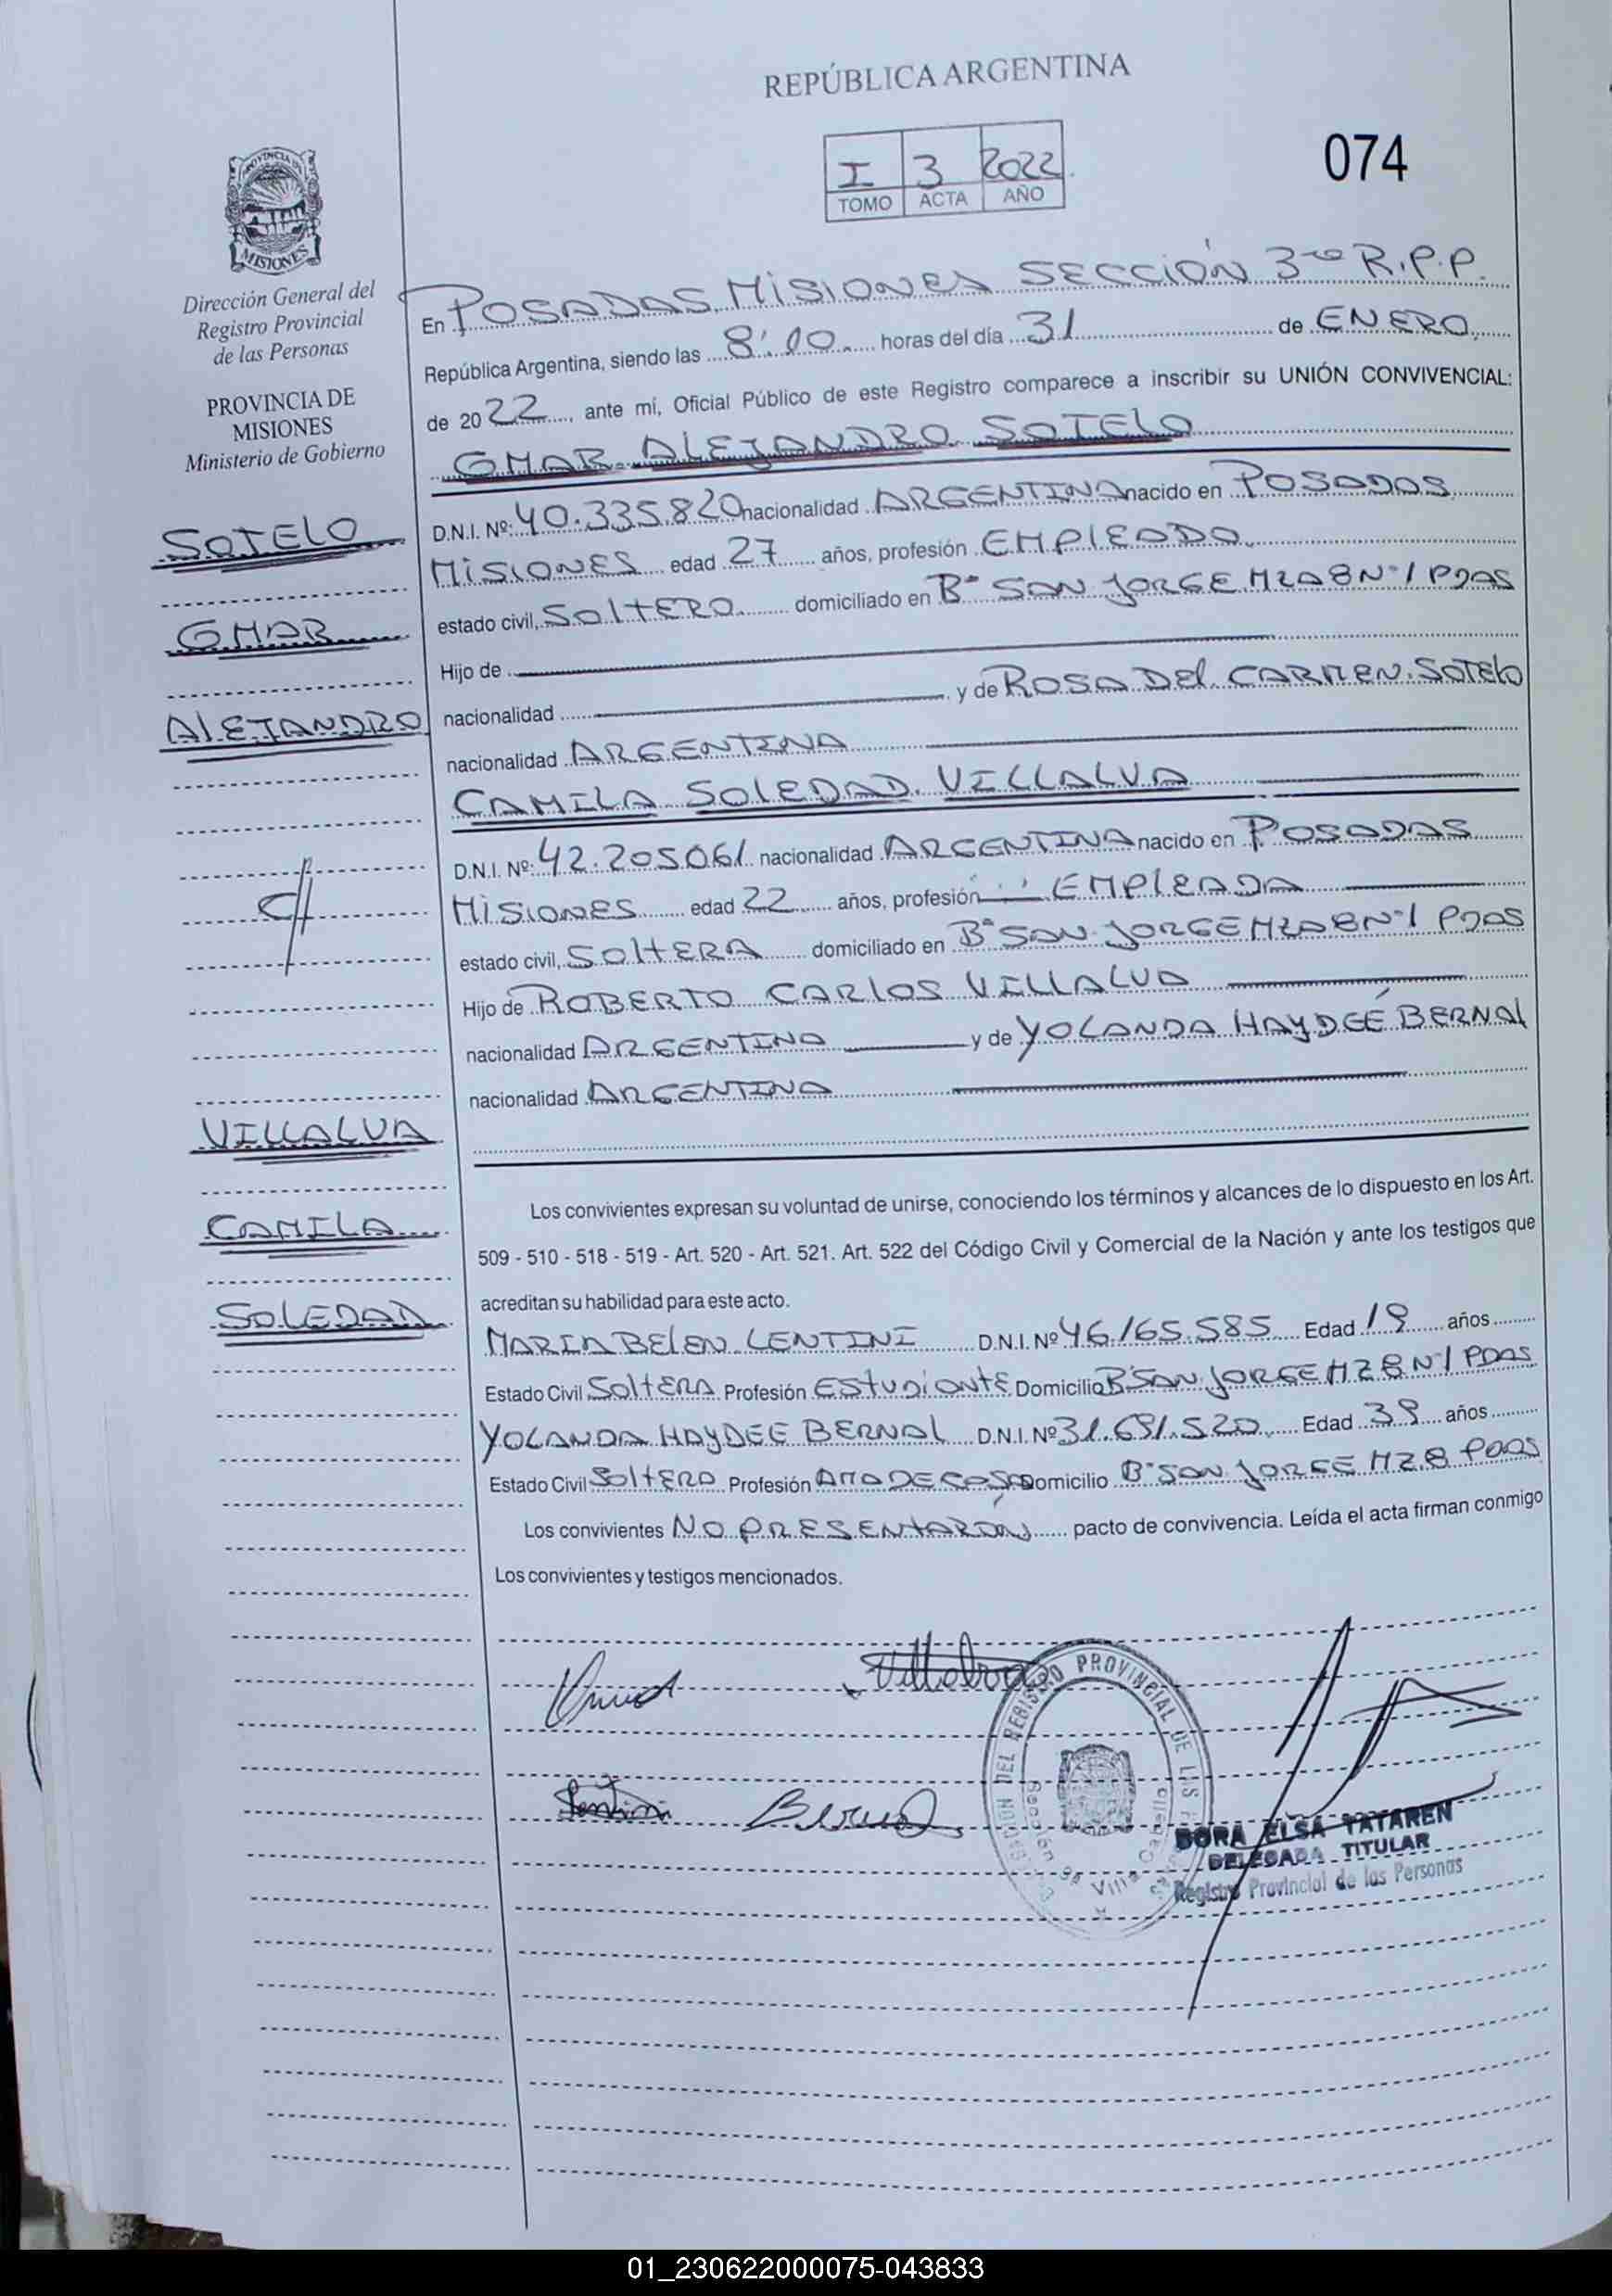 REPÚBLICA ARGENTINA
I 3 2022
TOMO ACTA AÑO
074
PROVINCIA DE
MISIONES
Dirección General del
Registro Provincial
de las Personas
PROVINCIA DE
MISIONES
Ministerio de Gobierno
En POSADAS, MISIONES SECCIÓN 3ra R.P.P.
República Argentina, siendo las 8:10 horas del día 31 de ENERO
de 2022, ante mí, Oficial Público de este Registro comparece a inscribir su UNIÓN CONVIVENCIAL:
OMAR ALEJANDRO SOTELO
D.N.I. Nº: 40.335.820 nacionalidad ARGENTINA nacido en POSADAS
MISIONES edad 27 años, profesión EMPLEADO
estado civil, SOLTERO domiciliado en Bº SAN JORGE MZA 8 Nº 1 PDAS
Hijo de
nacionalidad y de ROSA DEL CARMEN SOTELO
nacionalidad ARGENTINA
CAMILA SOLEDAD VILLALVA
D.N.I. Nº: 42.205.061 nacionalidad ARGENTINA nacido en POSADAS
MISIONES edad 22 años, profesión EMPLEADA
estado civil, SOLTERA domiciliado en Bº SAN JORGE MZA 8 Nº 1 PDAS
Hijo de ROBERTO CARLOS VILLALVA
nacionalidad ARGENTINA y de YOLANDA HAYDEÉ BERNAL
nacionalidad ARGENTINA
SOTELO
OMAR
ALEJANDRO
c/
VILLALVA
CAMILA
SOLEDAD
Los convivientes expresan su voluntad de unirse, conociendo los términos y alcances de lo dispuesto en los Art.
509 - 510 - 518 - 519 - Art. 520 - Art. 521. Art. 522 del Código Civil y Comercial de la Nación y ante los testigos que
acreditan su habilidad para este acto.
MARIA BELEN LENTINI D.N.I. Nº 46.165.585 Edad 19 años
Estado Civil SOLTERA Profesión ESTUDIANTE Domicilio Bº SAN JORGE MZ 8 Nº 1 PDAS
YOLANDA HAYDEE BERNAL D.N.I. Nº 31.691.520 Edad 39 años
Estado Civil SOLTERA Profesión AMA DE CASA Domicilio Bº SAN JORGE MZ 8 PDAS
Los convivientes NO PRESENTARÓN pacto de convivencia. Leída el acta firman conmigo
Los convivientes y testigos mencionados.
Villalva
Lentini Bernal
DEL REGISTRO PROVINCIAL DE LAS
Sección 3ª Villa Cabello
DORA ELSA TATAREN
DELEGADA TITULAR
Registro Provincial de las Personas
01_230622000075-043833